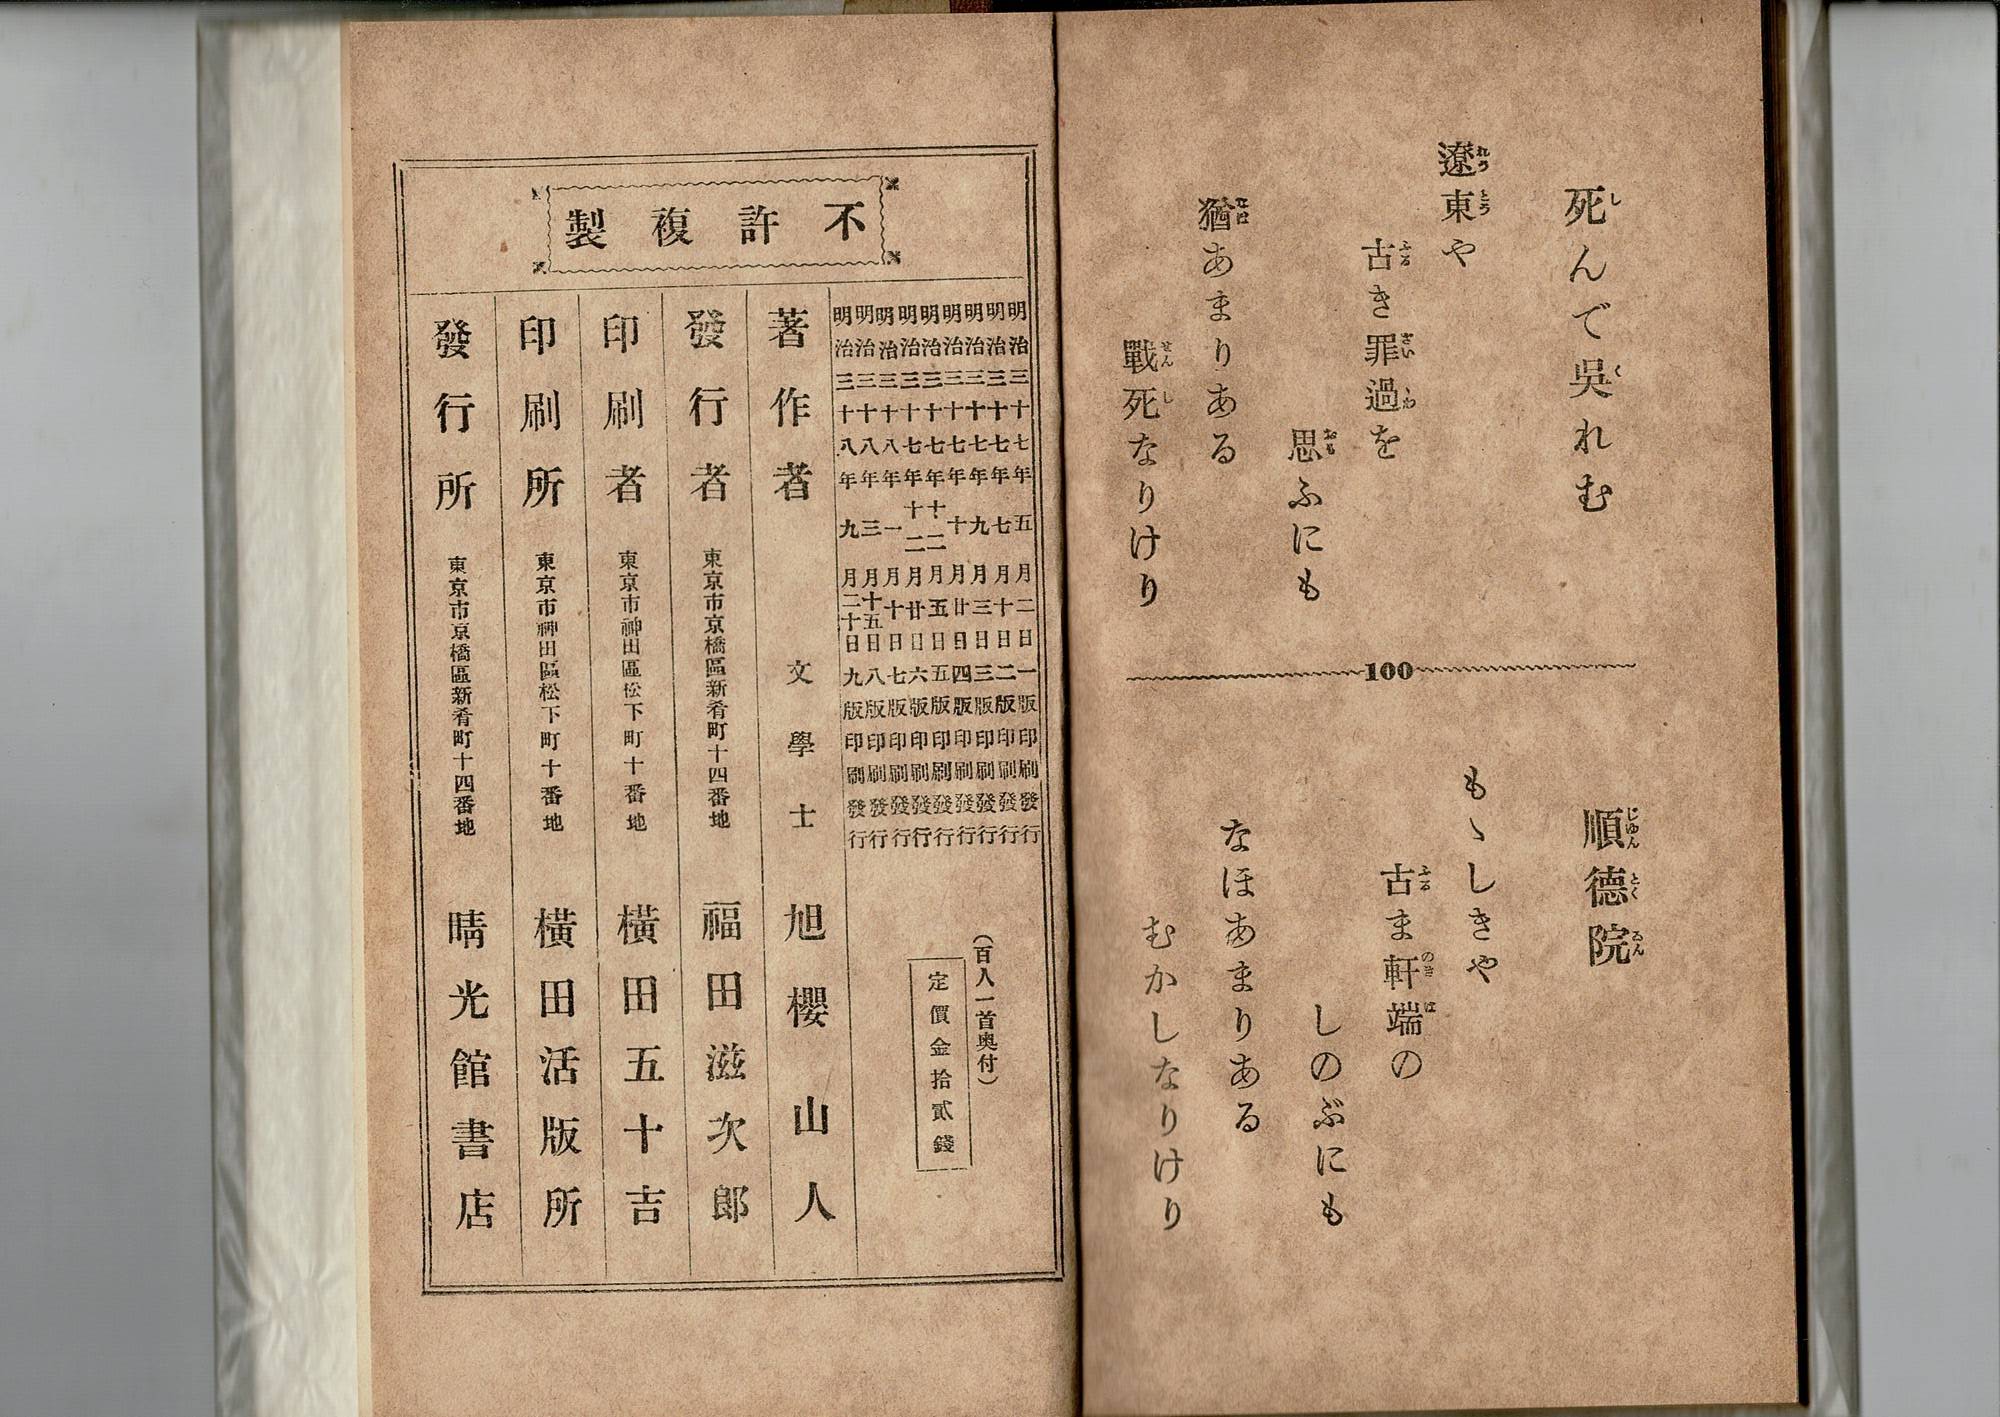 死んで呉れむ
遼東や
古き罪過を
思ふにも
猶あまりある
戰死なりけり
100
順德院
もゝしきや
古ま軒端の
しのぶにも
なほあまりある
むかしなりけり
不許複製
明治三十七年五月二日一版印刷發行
明治三十七年七月十日二版印刷發行
明治三十七年九月三日三版印刷發行
明治三十七年十月廿日四版印刷發行
明治三十七年十二月五日五版印刷發行
明治三十七年十二月廿日六版印刷發行
明治三十八年一月十日七版印刷發行
明治三十八年三月十五日八版印刷發行
明治三十八年九月二十日九版印刷發行
(百人一首奥付)
定價金拾貳錢
著作者 文學士 旭櫻山人
發行者 東京市京橋區新肴町十四番地 福田滋次郎
印刷者 東京市神田區松下町十番地 横田五十吉
印刷所 東京市神田區松下町十番地 横田活版所
發行所 東京市京橋區新肴町十四番地 晴光館書店